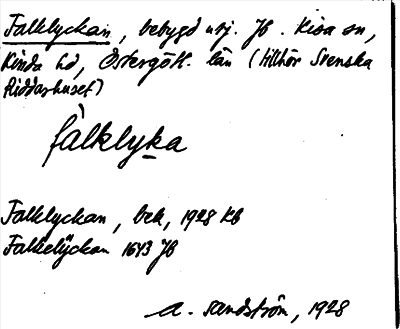 Falklyckan, bebygd urj. JB. Kisa sn,
Kinda hd, Östergötl. län (tillhör Svenska
Riddarhuset)
fàlklyka
Falklyckan, bek, 1928 kb
Falkelÿckan 1643 JB
A. Sandström, 1928